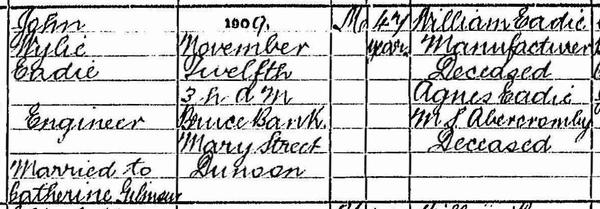 John
Wylie
Eadie
Engineer
Married to
Catherine Gilmour
1909.
November
Twelfth
3 h a m
Bruce Bank
Mary Street
Dunoon
M
47
years
William Eadie
Manufacturer
Deceased
Agnes Eadie
M S Abercromby
Deceased